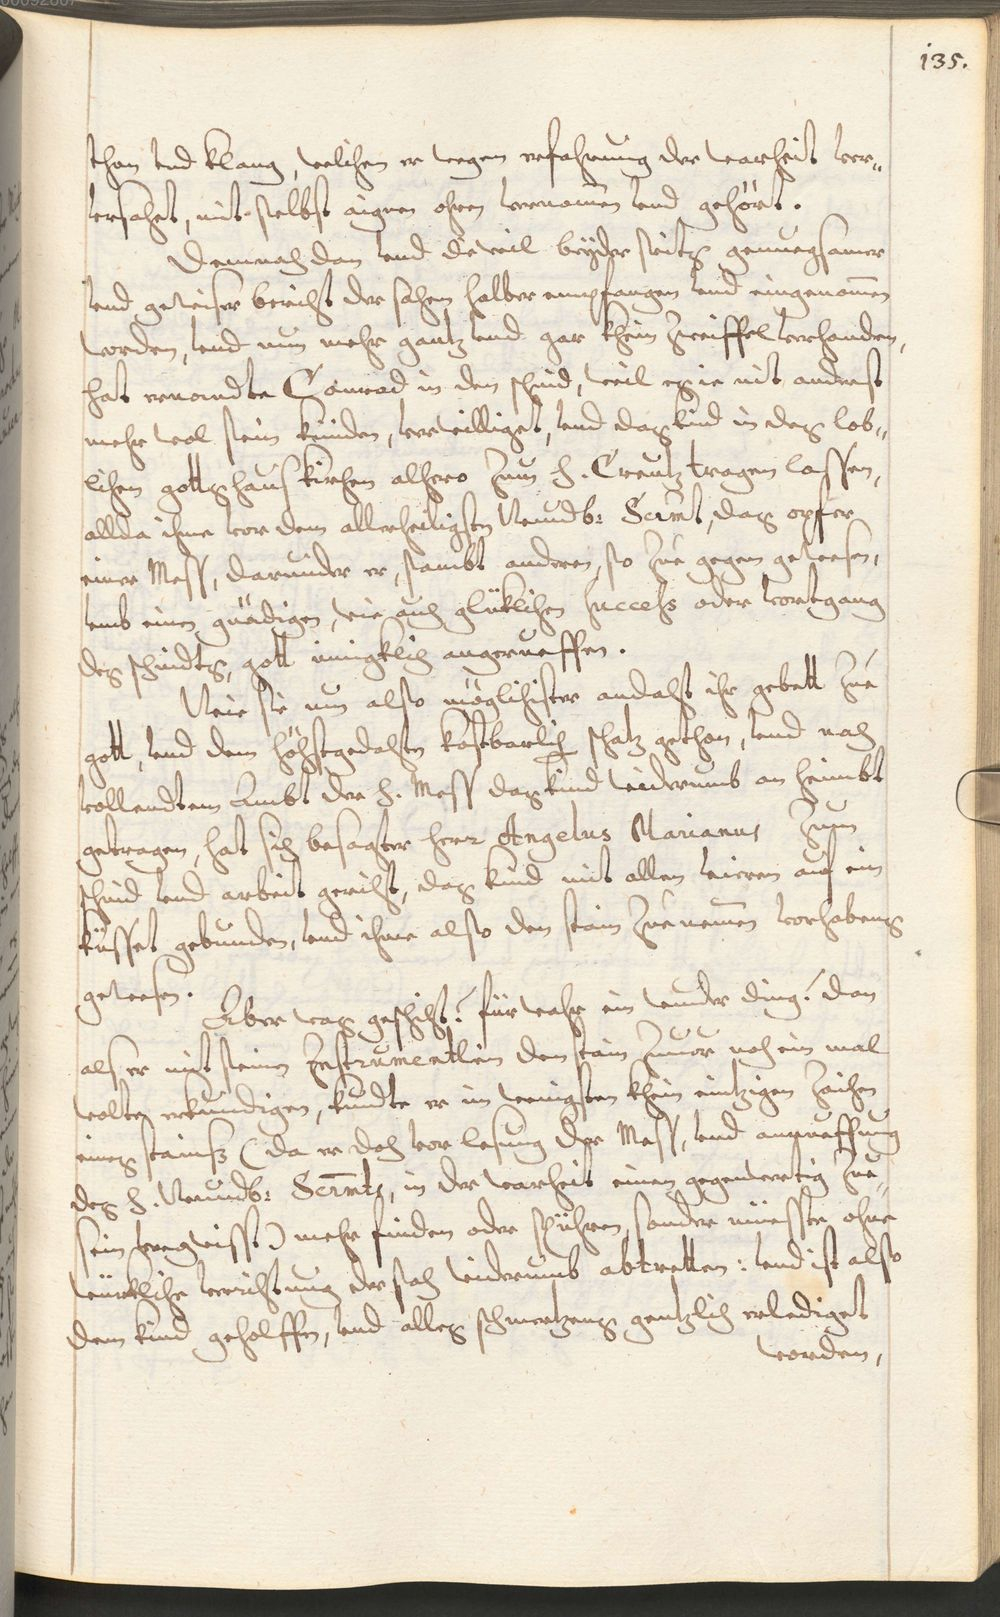 135.
thon vnd klang, welichen er wegen erfahrung der warheit ver„
versacht, mit selbst aignen ohren vernomen vnd gehört.
Demnach dan vnd dieweil beyder seits genuegsamer
vnd gewiser bericht der sachen halber empfangen vnd eingenomen
worden, vnd nun mehr gantz vnd gar khein zweiffel verhanden,
hat ernandte Conrad in den schnid, weil es ie nit anderst
mehr wol sein künden, verwilliget, vnd das kind in das lob„
lichen gottshaus kirchen alhero zum h. Creutz tragen lassen,
allda ihme vor dem allerheiligsten Wundb: Scrmt, das opfer
einer Mess, darunder er, sambt anderen, so zue gegen gewesen,
vmb einen gnädigen, wie auch glüklichen success oder vortgang
des schnidts, gott innigklich angerueffen.
Wie sie nun also möglichister andacht ihr gebett zue
gott, vnd dem höchstgedachten kostbarlich schatz gethon, vnd nach
vollendtem Ambt der h. Mess das kind widerumb an heimbt
getragen, hat sich besagter herr Angelus Marianus zum
schnid vnd arbeit gericht, das kind mit allen vieren auf ein
küsset gebunden, vnd ihme also den stain zue nemen vorhabens
gewesen.
Aber was geschicht? fürwahr ein wunder ding! dan
als er mit seinen Instrumentlein den stain zuuor noch ein mal
wolte erkundigen, kundte er im wenigsten khein eintzigen zaichen
eines stains (da er doch vor lesung der Mess, vnd anrueffung
des h. Wundb: Scrmts, in der warheit einen gegenwertig zue„
sein vergwisst) mehr finden oder spühren, sonder müesste ohne
würkliche verrichtung der sach widerumb abtretten: vnd ist also
dem kind geholffen, vnd alles schmertzens gentzlich erlediget
worden,